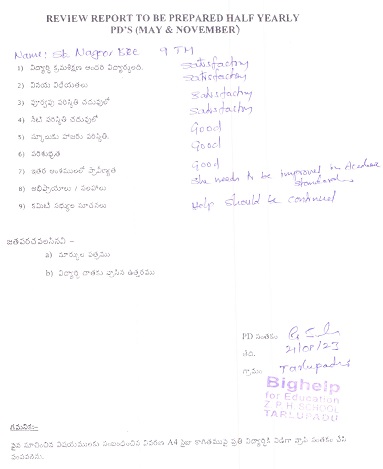 REVIEW REPORT TO BE PREPARED HALF YEARLY
PD'S (MAY & NOVEMBER)
Name: SK Nagoor BEE 9TH
1) విద్యార్థి క్రమశిక్షణ అందరి విద్యార్థులది. satisfactory
2) వినయ విధేయతలు satisfactory
3) పూర్వపు పరిస్థితి చదువులో satisfactory
4) నేటి పరిస్థితి చదువులో satisfactory
5) స్కూలుకు హాజరు పరిస్థితి. Good
6) పరిశుభ్రత Good
7) ఇతర అంశములలో ప్రావీణ్యత Good
8) అభిప్రాయాలు / సలహాలు She needs to be improved in Academic Standards
9) కమిటీ సభ్యుల సూచనలు Help should be continued
జతపరచవలసినవి :-
a) మార్కుల పత్రము
b) విద్యార్థి దాతకు వ్రాసిన ఉత్తరము
PD సంతకం
తేది. 21/08/23
గ్రామం Tarlupadu
Bighelp
for Education
Z.P.H. SCHOOL
TARLUPADU
గమనిక:-
పైన సూచించిన విషయములకు సంబంధించిన వివరణ A4 సైజు కాగితముపై ప్రతి విద్యార్థికి విడిగా వ్రాసి సంతకం చేసి
పంపవలెను.